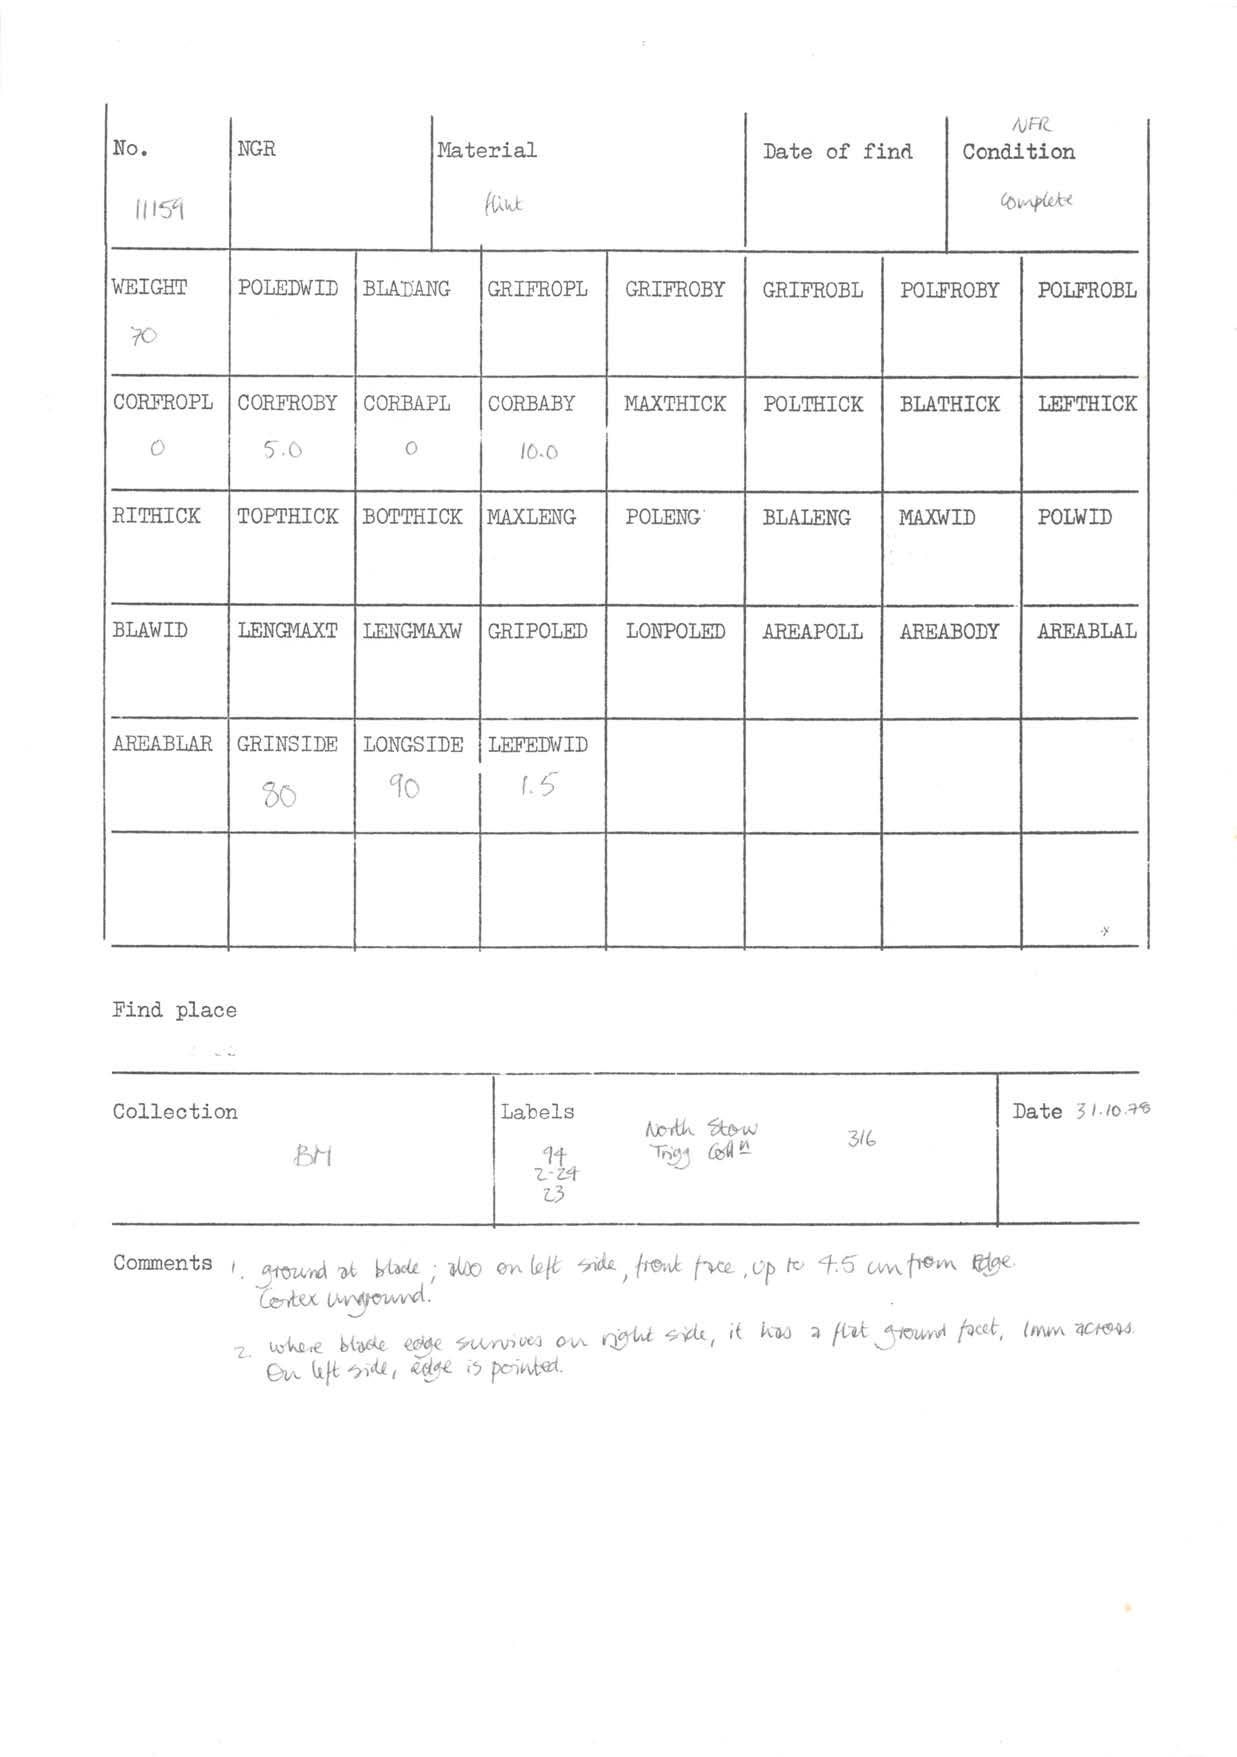 NFR
No. NGR Material Date of find Condition
11159 flint complete
WEIGHT POLEDWID BLADANG GRIFROPL GRIFROBY GRIFROBL POLFROBY POLFROBL
70
CORFROPL CORFROBY CORBAPL CORBABY MAXTHICK POLTHICK BLATHICK LEFTHICK
0 5.0 0 10.0
RITHICK TOPTHICK BOTTHICK MAXLENG POLENG BLALENG MAXWID POLWID
BLAWID LENGMAXT LENGMAXW GRIPOLED LONPOLED AREAPOLL AREABODY AREABLAL
AREABLAR GRINSIDE LONGSIDE LEFEDWID
80 90 1.5
Find place
Collection Labels Date 31.10.78
BM
94
2-24
23
North Stow
Trigg Colln
316
Comments 1. ground at blade; also on left side, front face, up to 4.5 cm from edge.
Cortex unground.
2. where blade edge survives on right side, it has a flat ground facet, 1mm across.
On left side, edge is pointed.